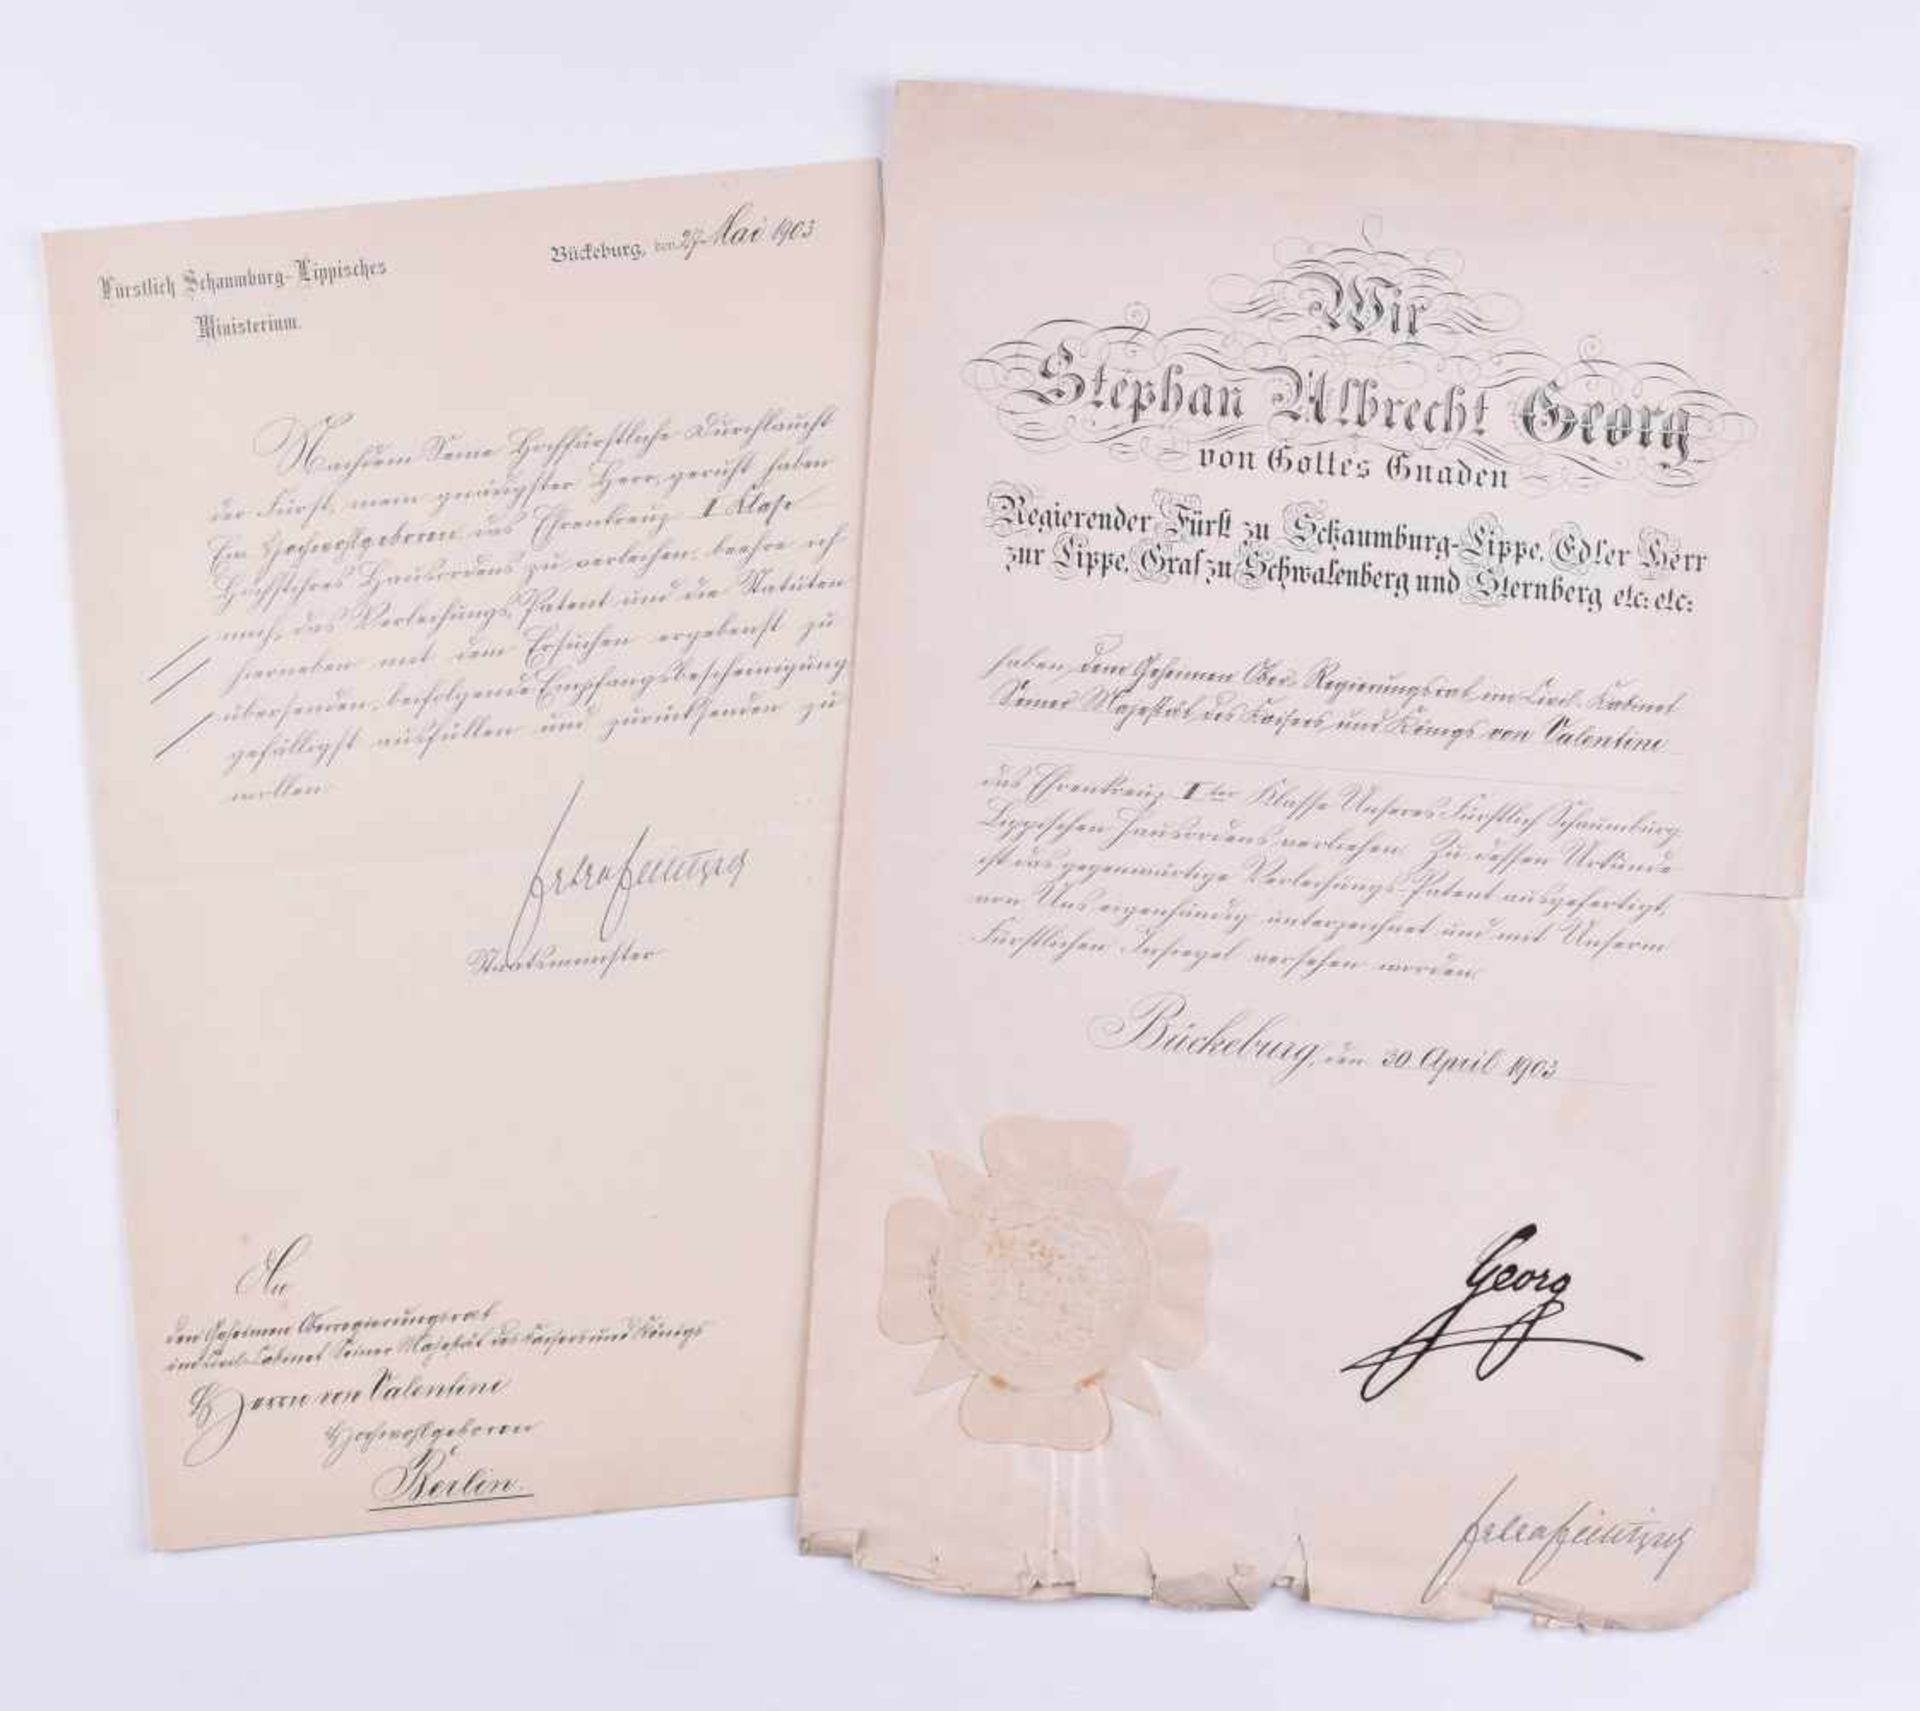 Fürstlich Schaumburg-Lippisches
Ministerium.
Bückeburg, den 27 Mai 1903
Nachdem Seine Hochfürstliche Durchlaucht
der Fürst, mein gnädigster Herr, geruht haben
Ew. Hochwohlgeboren das Ehrenkreuz II Klasse
Höchstihres Hausordens zu verleihen, beehre ich
mich, das Verleihungs-Patent und die Statuten
hierneben mit dem Ersuchen ergebenst zu
übersenden, beifolgende Empfangsbescheinigung
gefälligst ausfüllen und zurücksenden zu
wollen.
Staatsminister
An
den Geheimen Oberregierungsrat
im Civil-Cabinet Seiner Majestät des Kaisers und Königs
Herrn von Valentini
Hochwohlgeboren
Berlin.
Wir
Stephan Albrecht Georg
von Gottes Gnaden
Regierender Fürst zu Schaumburg-Lippe, Edler Herr
zur Lippe, Graf zu Schwalenberg und Sternberg etc: etc:
haben dem Geheimen Ober-Regierungsrat im Civil-Kabinet
Seiner Majestät des Kaisers und Königs von Valentini
das Ehrenkreuz IIter Klasse Unseres Fürstlich Schaumburg-
Lippischen Hausordens verliehen. Zu dessen Urkunde
ist das gegenwärtige Verleihungs-Patent ausgefertigt,
von Uns eigenhändig unterzeichnet und mit Unserm
Fürstlichen Insiegel versehen worden.
Bückeburg, den 30 April 1903
Georg